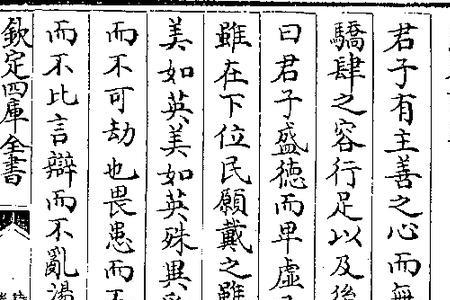 君子有主善之心而無
驕肆之容行足以及後
曰君子盛德而卑虛
雖在下位民願戴之雖
美如英美如英殊異
而不可劫也畏患而不
而不比言辯而不亂湯
欽定四庫全書